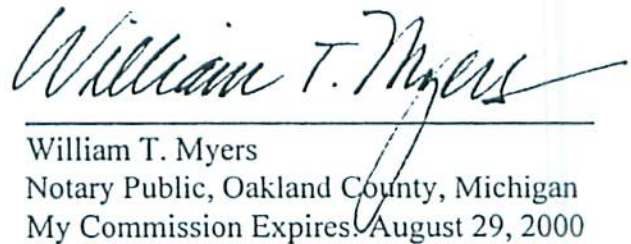 William T. Myers
William T. Myers
Notary Public, Oakland County, Michigan
My Commission Expires: August 29, 2000